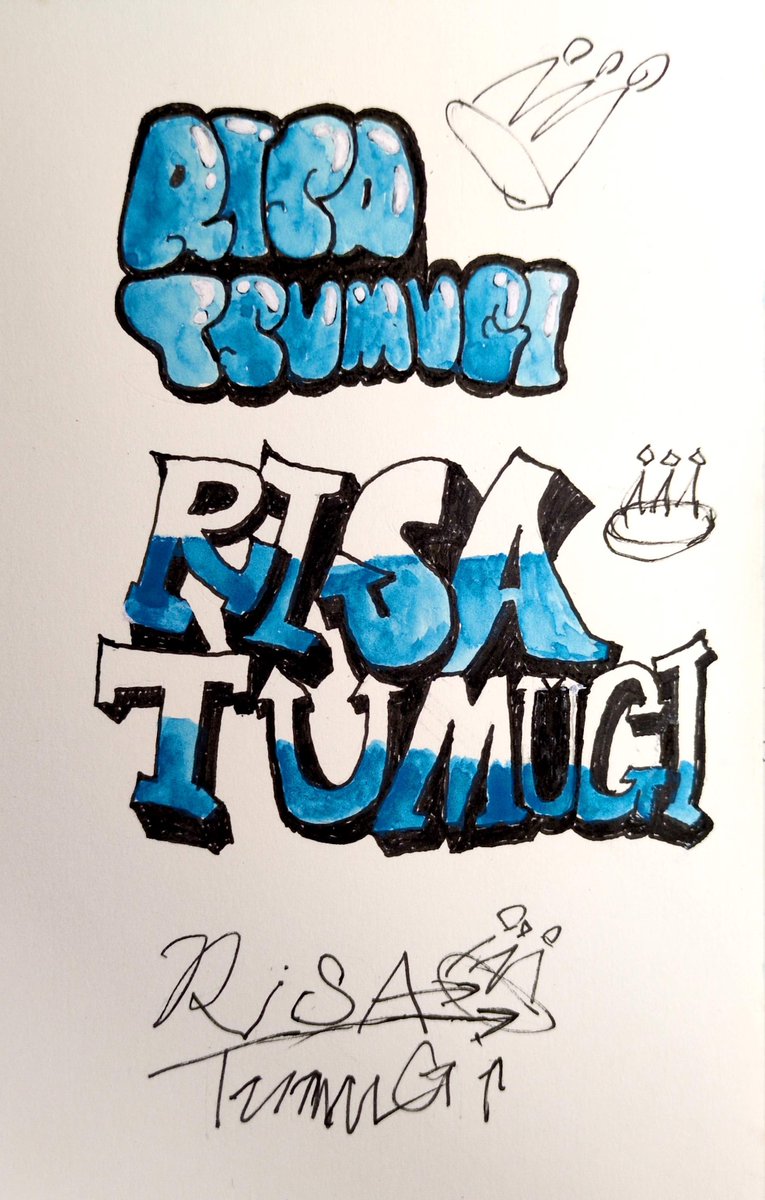 RISA
TSUMUGI
RISA
TUMUGI
RiSA
TumuGi